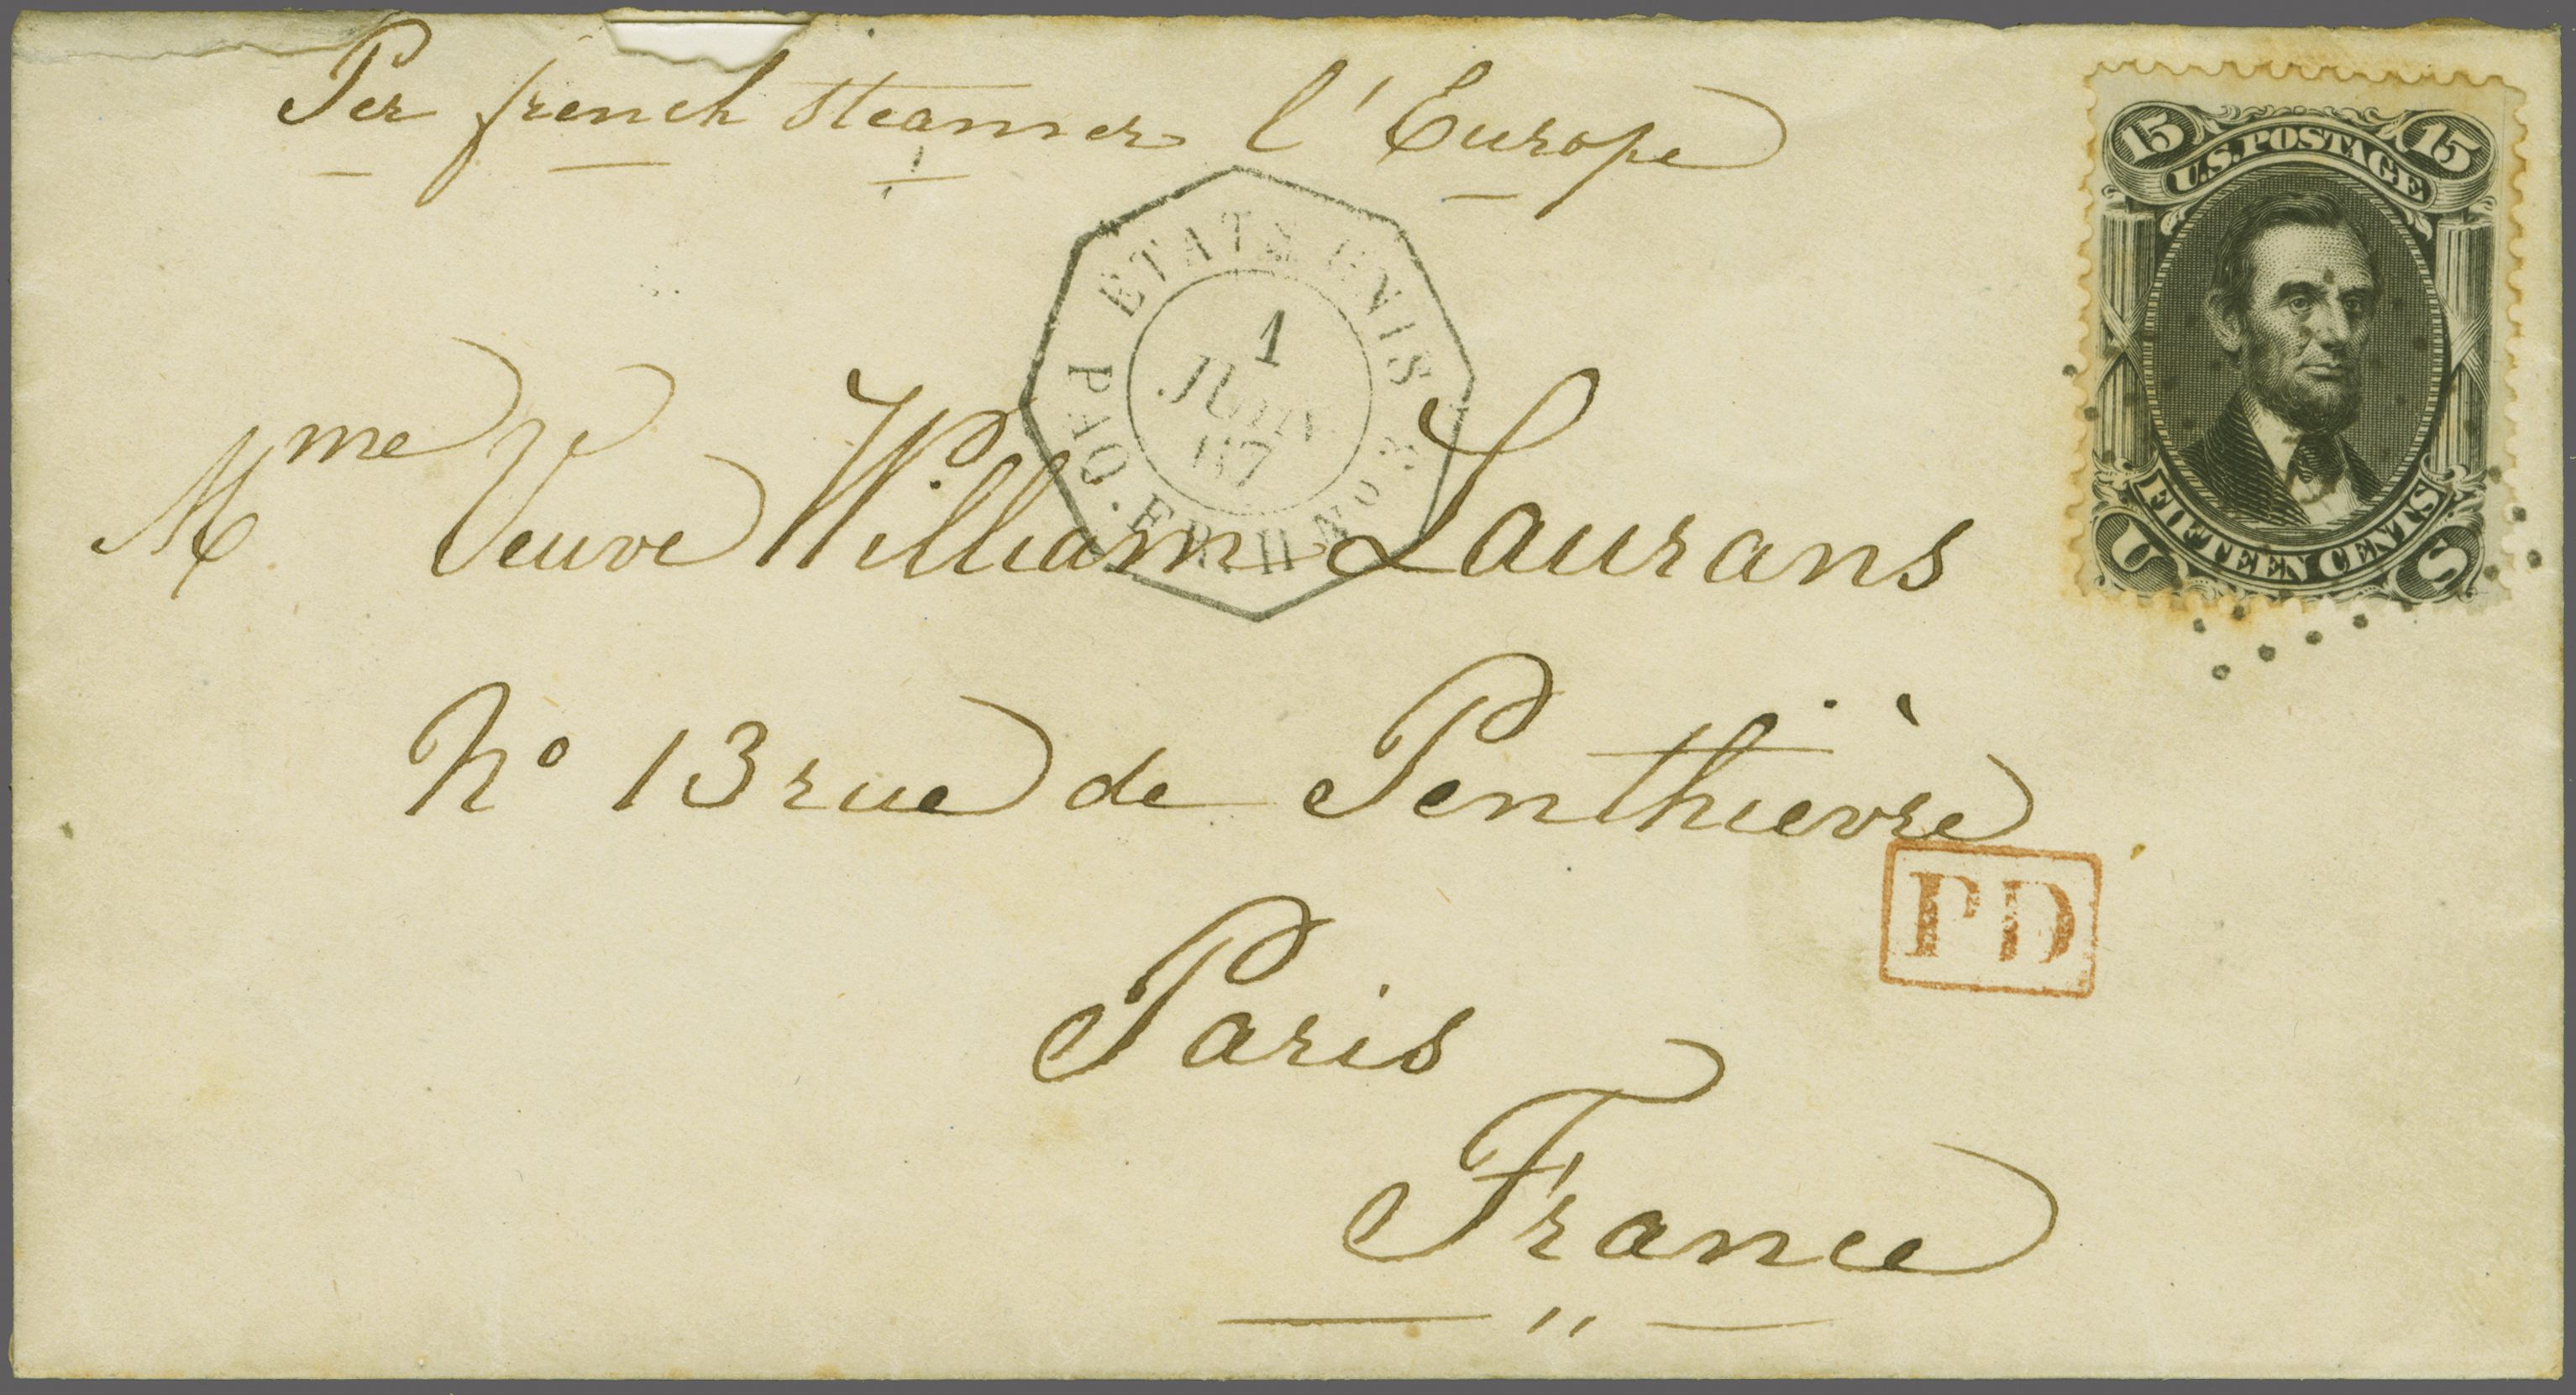 Per french steamer l'Europe
15 U.S. POSTAGE 15
FIFTEEN CENTS
U S
ETATS UNIS
1
JUIN
67
PAQ. FR. H No 3
Mme Veuve William Laurans
No 13 rue de Penthièvre
PD
Paris
France